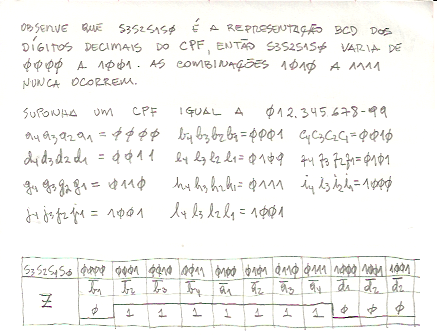 OBSERVE QUE S3S2S1S0 É A REPRESENTAÇÃO BCD DOS
DÍGITOS DECIMAIS DO CPF, ENTÃO S3S2S1S0 VARIA DE
0000 A 1001. AS COMBINAÇÕES 1010 A 1111
NUNCA OCORREM.
SUPONHA UM CPF IGUAL A 012.345.678-99
a4a3a2a1 = 0000 b4b3b2b1 = 0001 c4c3c2c1 = 0010
d4d3d2d1 = 0011 e4e3e2e1 = 0100 f4f3f2f1 = 0101
g4g3g2g1 = 0110 h4h3h2h1 = 0111 i4i3i2i1 = 1000
j4j3j2j1 = 1001 l4l3l2l1 = 1001
S3S2S1S0 0000 0001 0010 0011 0100 0101 0110 0111 1000 1001
Z b1 b2 b3 b4 a1 a2 a3 a4 d1 d2 d2
0 1 1 1 1 1 1 1 0 0 0